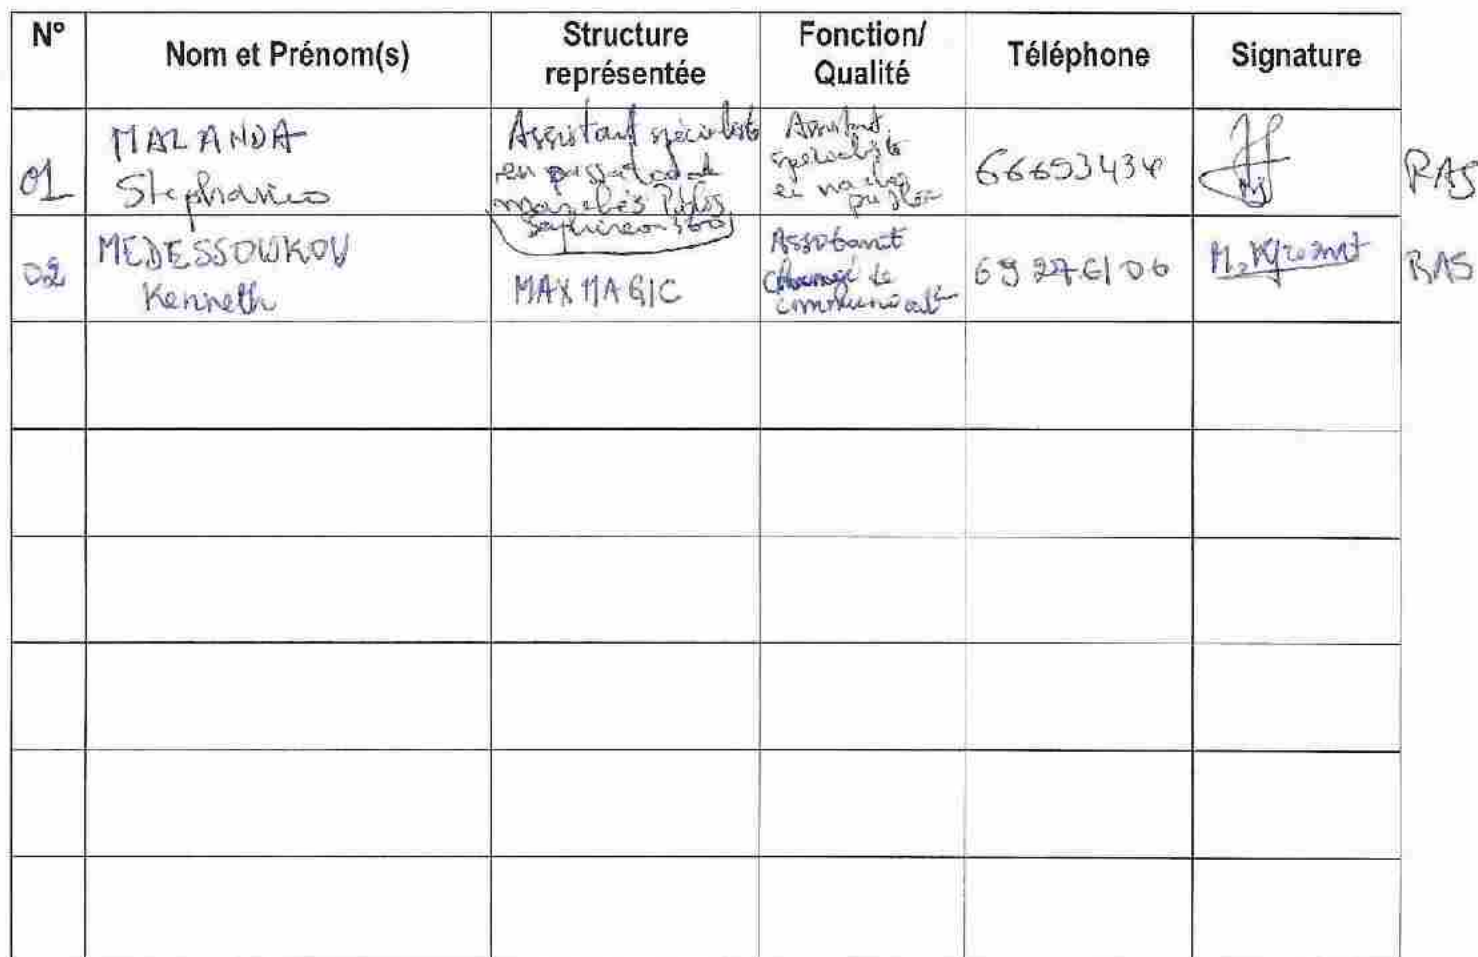 N° Nom et Prénom(s) Structure représentée Fonction/ Qualité Téléphone Signature
01 MALANDA Stephanie Assistant spécialiste en marchés Assistant spécialiste en 66653434 RAS
02 MEDESSOUKOU Kenneth MAX MAGIC Assistant chargé de communicat° 69276106 RAS